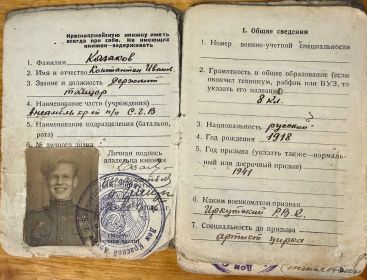 Красноармейскую книжку иметь
всегда при себе. Не имеющих
книжек — задерживать
1. Фамилия Казаков
2. Имя и отчество Константин Иван.
3. Звание и должность сержант
танцор
4. Наименование части (учреждения)
Ансамбль кр-й п/п С.Г.В
5. Наименование подразделения (батальон,
рота)
6. № личного знака
Личная подпись
владельца книжки
I. Общие сведения
1. Номер военно-учетной специальности
2. Грамотность и общее образование (если
окончил техникум, рабфак или ВУЗ, то
указать его название)
8 кл.
3. Национальность русский
4. Год рождения 1918
5. Год призыва (указать также — нормаль-
ный или досрочный призыв)
1941
6. Каким военкоматом призван
Иркутский РВК.
7. Специальность до призыва
артист цирка